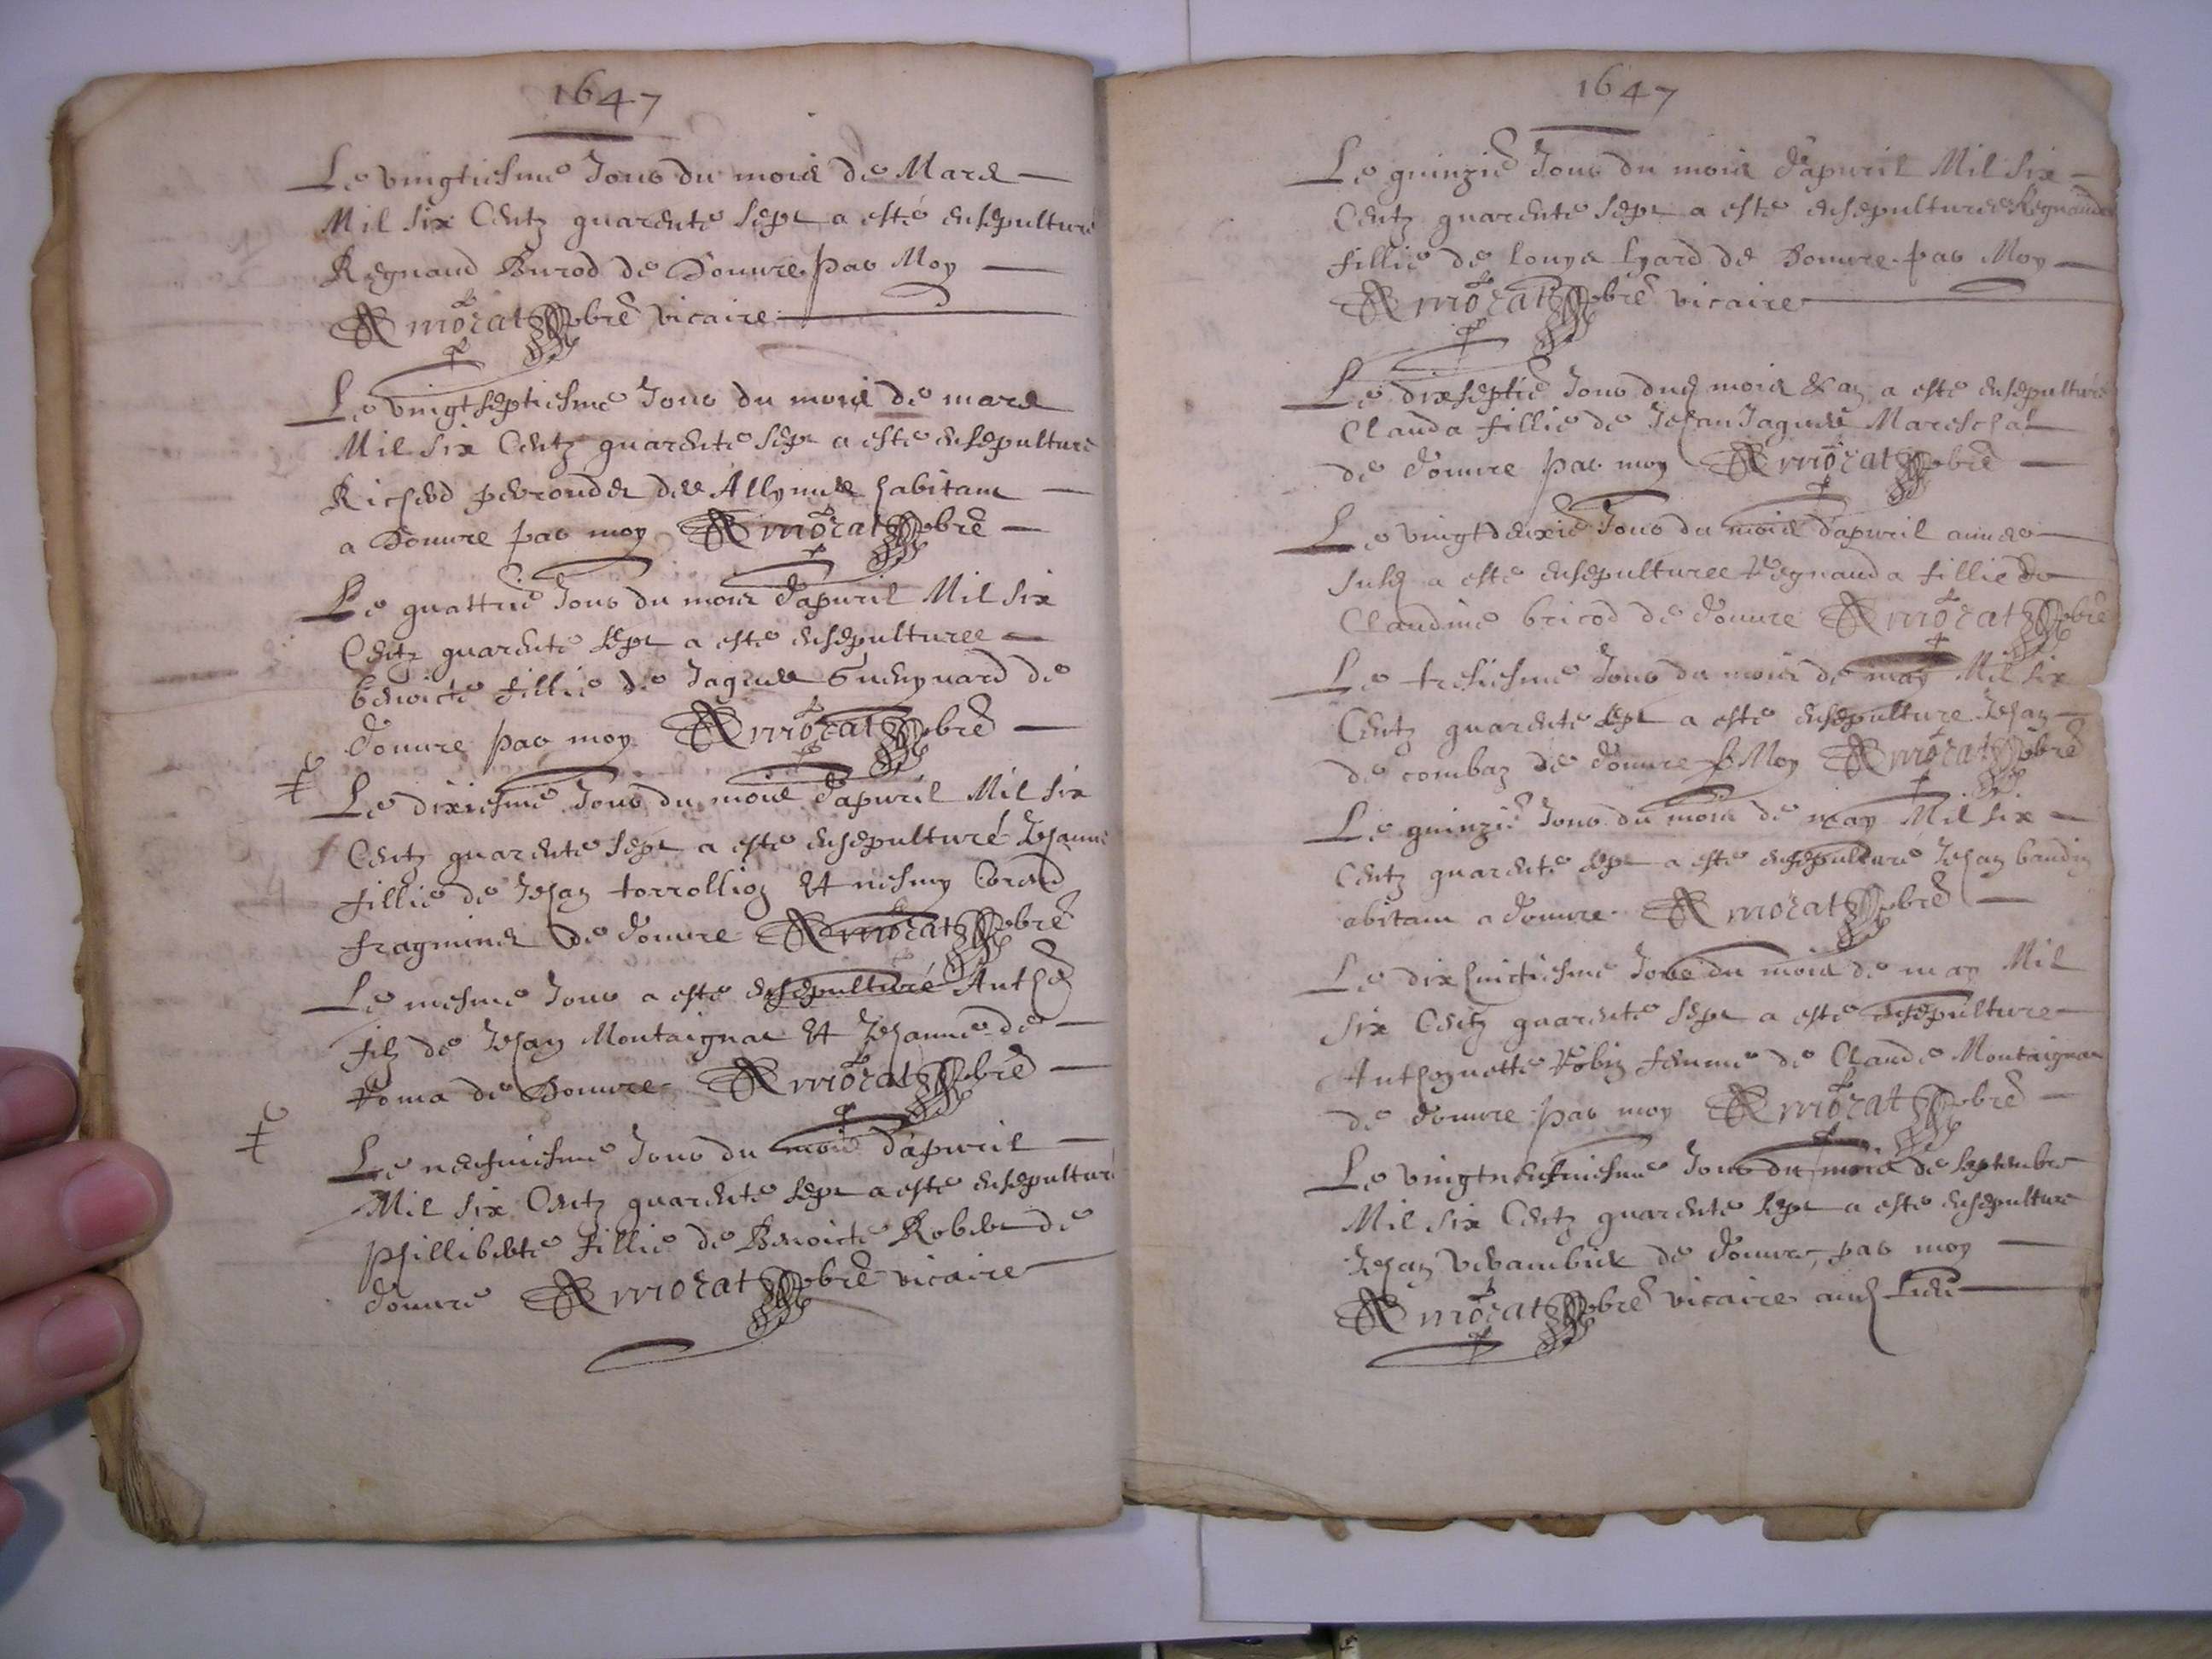 1647
Le vingtiesme Jour du mois de Mars
Mil six Centz quarente sept a esté ensepulturé
Regnaud Burod de Douvre par Moy
Morat pbre vicaire
Le vingtseptiesme Jour du mois de mars
Mil six Centz quarente sept a esté ensepulturé
habitant
a Douvre par moy Morat pbre
Le quattrie Jour du mois d'apvril Mil six
Centz quarente sept a esté ensepulturee
benoicte fillie de Jaques Guenynard de
Douvre par moy Morat pbre
Le dixiesme Jour du mois d'apvril Mil six
Centz quarente sept a esté ensepulturé Jehanne
fillie de Jehan torrollion Et
de Douvre Morat pbre
Le mesme Jour a esté ensepulturé Anthe
filz de Jehan Montaignat Et Jehanne de
Roma de Douvre Morat pbre
Le neufviesme Jour du mois d'apvril
Mil six Centz quarente sept a esté ensepulturé
Philliberte fillie de Benoicte Robert de
Douvre Morat pbre vicaire
1647
Le quinzie Jour du mois d'apvril Mil six
Centz quarente sept a esté ensepulturee Regnauda
fillie de Louys Lyard de Douvre par Moy
Morat pbre vicaire
Le dixseptie Jour dud mois & an a esté ensepulturé
Clauda fillie de Jehan Jaques Mareschal
de Douvre par moy Morat pbre
Le vingtdeuxie Jour du mois d'apvril annee
susd a esté ensepulturee Regnauda fillie de
Claudine bricod de Douvre Morat pbre
Le tresiesme Jour du mois de may Mil six
Centz quarente sept a esté ensepulturé Jehan
de combaz de Douvre p Moy Morat pbre
Le quinzie Jour du mois de may Mil six
Centz quarente sept a esté ensepulturé Jehan baudin
abitant a Douvre Morat pbre
Le dixhuictiesme Jour du mois de may Mil
six Centz quarente sept a esté ensepulturé
Anthoynette Robin femme de Claude Montaignat
de Douvre par moy Morat pbre
Le vingtneufviesme Jour du mois de septembre
Mil six Centz quarente sept a esté ensepulturé
Jehan de Douvre par moy
Morat pbre vicaire aud Lieu